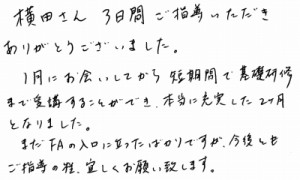 横田さん 3日間 ご指導いただき
ありがとうございました。
1月にお会いしてから 短期間で基礎研修
まで受講することができ、本当に充実した2ヶ月
となりました。
まだFAの入口に立ったばかりですが、今後とも
ご指導の程、宜しくお願い致します。